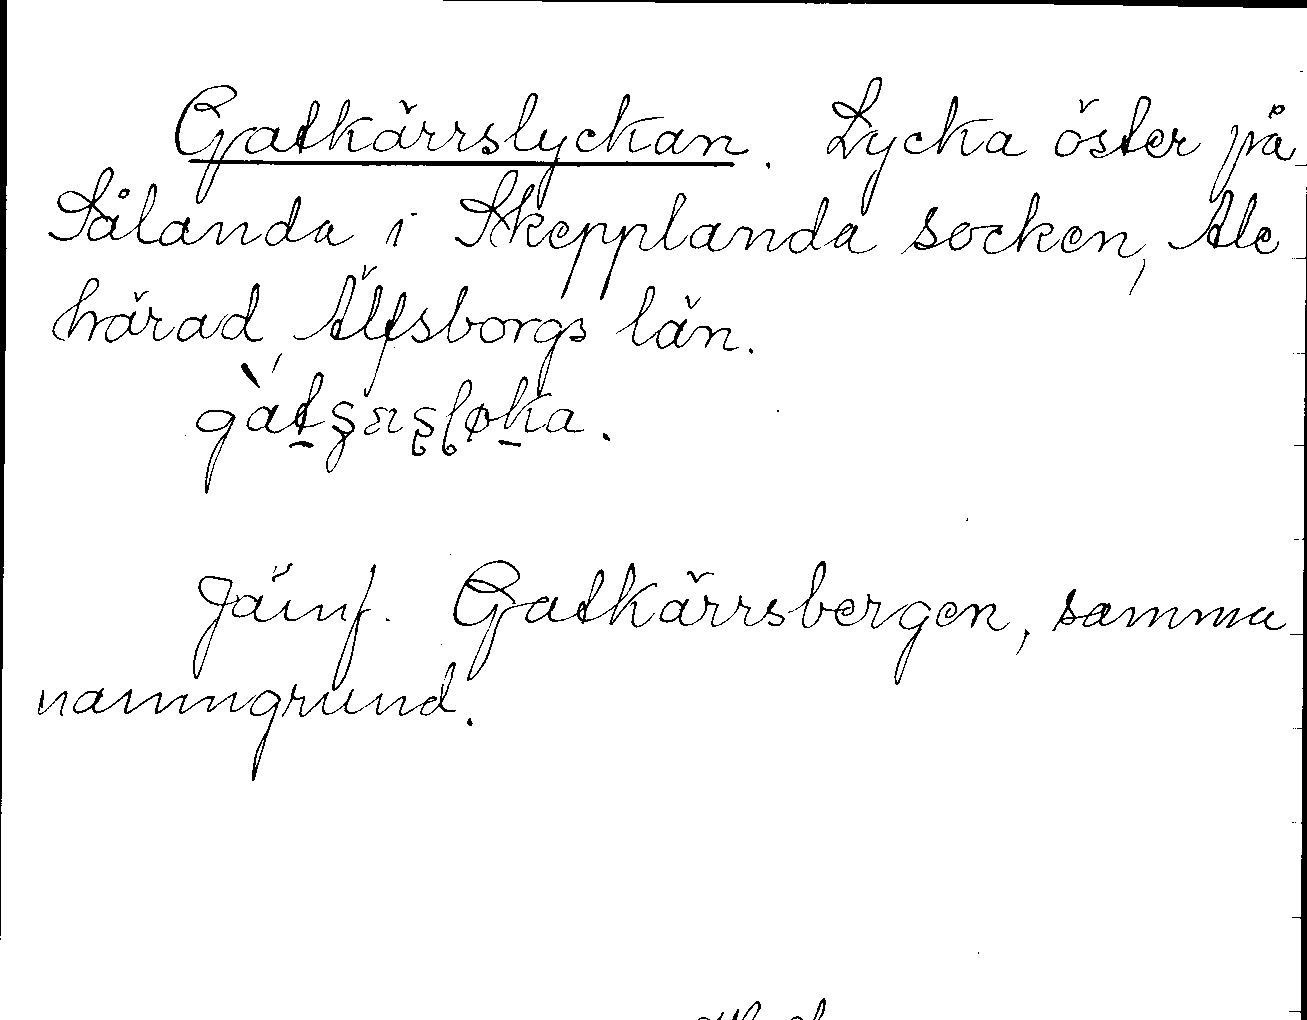 Gatkärrslyckan. Lycka öster på
Sålanda i Skepplanda socken, Ale
härad, Älfsborgs län.
Jämf. Gatkärrsbergen, samma
namngrund.